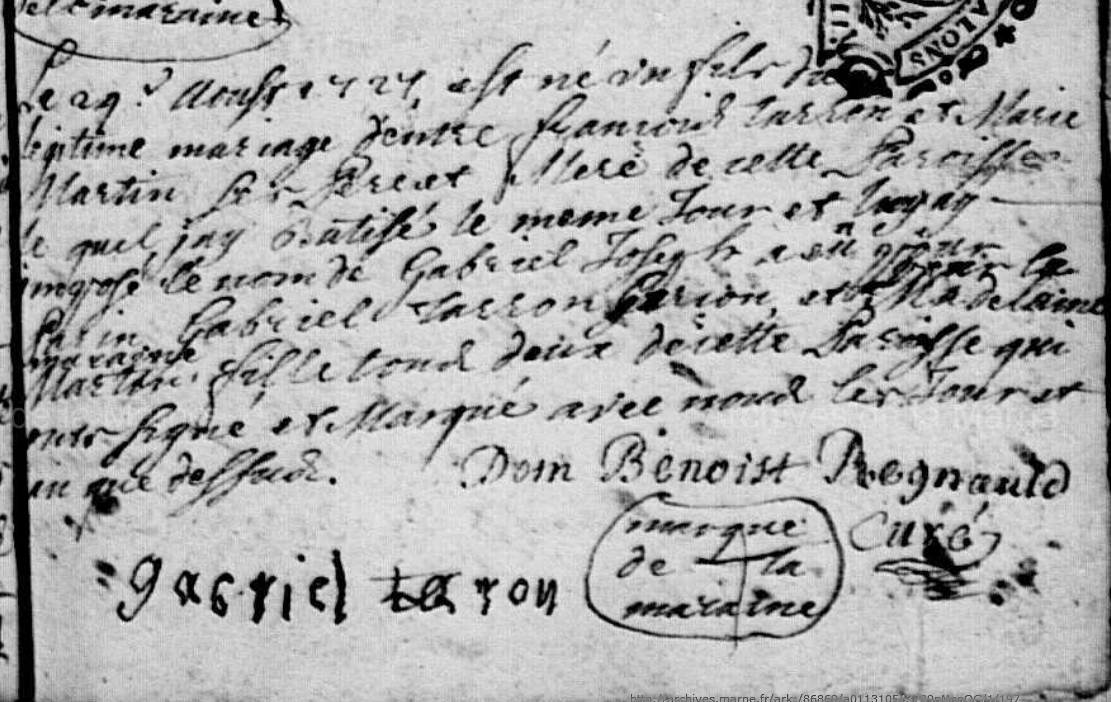 et la maraine
Le 29.e Aoust 17 est né un fils du
legitime mariage d'entre françois tarron et Marie
Martin ses Pere et Mere de cette Paroisse
le quel jay Batisé le meme Jour et luy ay
imposé le nom de Gabriel Joseph a eu pour
Parin Gabriel tarron garçon et pour la
maraine Madelaine
Martin fille tous deux de cette Paroisse qui
ont signé et Marqué avec nous les Jour et
an que dessus. Dom Benoist Regnauld
Curé
marque
de la
maraine
gabriel taron
ALONS
http://archives.marne.fr/ark:/86869/a011310